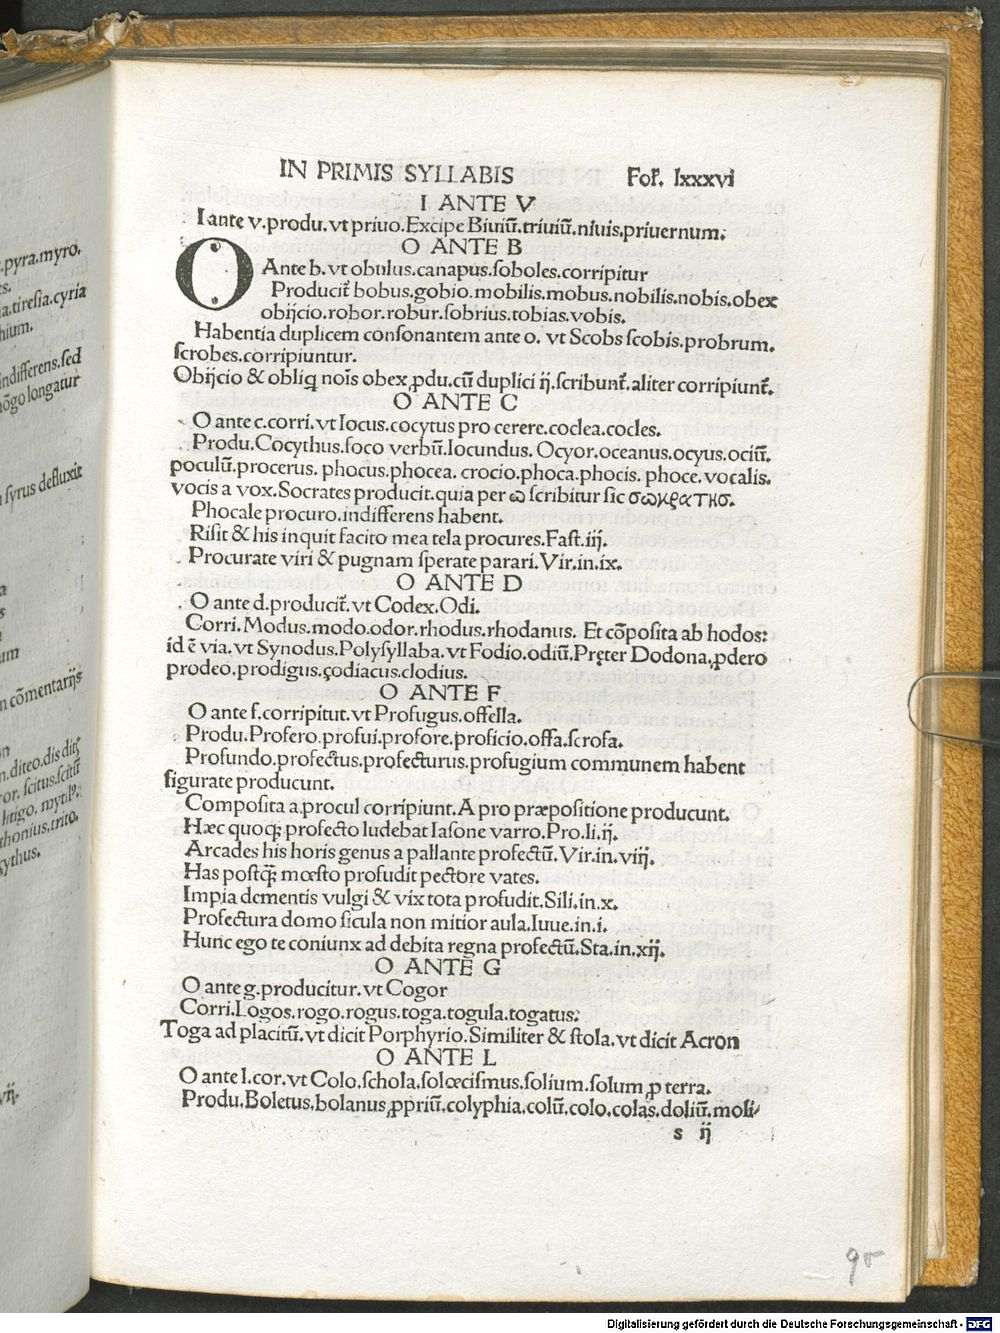 IN PRIMIS SYLLABIS Foł. lxxxvi
I ANTE V
I ante v.produ.vt priuo.Excipe Biuiũ.triuiũ.niuis.priuernum.
O ANTE B
O Ante b.vt obulus.canapus.soboles.corripitur
Producit̃ bobus.gobio.mobilis.mobus.nobilis.nobis.obex
obijcio.robor.robur.sobrius.tobias.vobis.
Habentia duplicem consonantem ante o. vt Scobs scobis.probrum.
scrobes.corripiuntur.
Obijcio & obliq nois obex ꝓdu.cũ duplici ij.scribunt̃.aliter corripiunt̃.
O ANTE C
O ante c.corri.vt Iocus.cocytus pro cerere.coclea.cocles.
Produ.Cocythus.foco verbũ.Iocundus. Ocyor.oceanus.ocyus.ociũ.
poculũ.procerus. phocus.phocea. crocio.phoca.phocis. phoce.vocalis.
vocis a vox.Socrates producit.quia per ω scribitur sic σωκρατησ.
Phocale procuro.indifferens habent.
Risit & his inquit facito mea tela procures.Fast.iij.
Procurate viri & pugnam sperate parari.Vir.in.ix.
O ANTE D
O ante d.producit̃.vt Codex.Odi.
Corri.Modus.modo.odor.rhodus.rhodanus. Et cõposita ab hodos:
id ẽ via.vt Synodus.Polysyllaba.vt Fodio.odiũ.Pręter Dodona.ꝓdero
prodeo.prodigus.çodiacus.clodius.
O ANTE F
O ante f.corripitut.vt Profugus.offella.
Produ.Profero.profui.profore.proficio.offa.scrofa.
Profundo.profectus.profecturus.profugium communem habent
figurate producunt.
Composita a procul corripiunt.A pro præpositione producunt.
Hæc quoqꝫ profecto ludebat Iasone varro.Pro.li.ij.
Arcades his horis genus a pallante profectũ.Vir.in.viij.
Has postqꝫ mœsto profudit pectore vates.
Impia dementis vulgi & vix tota profudit.Sili.in.x.
Profectura domo sicula non mitior aula.Iuue.in.i.
Hunc ego te coniunx ad debita regna profectũ.Sta.in.xij.
O ANTE G
O ante g.producitur.vt Cogor
Corri.Logos.rogo.rogus.toga.togula.togatus:
Toga ad placitũ.vt dicit Porphyrio.Similiter & stola.vt dicit Acron
O ANTE L
O ante l.cor.vt Colo.schola.solœcismus.solium.solum ꝓ terra.
Produ.Boletus.bolanus ꝓpriũ.colyphia.colũ.colo.colas.doliũ.moli/
s ij
pyra.myro.
tiresia.cyria
indifferens.sed
longatur
syrus defluxit
n cõmentarijs
diteo.dis
scitus.scitũ
litigo.
trito.
95
Digitalisierung gefördert durch die Deutsche Forschungsgemeinschaft - DFG